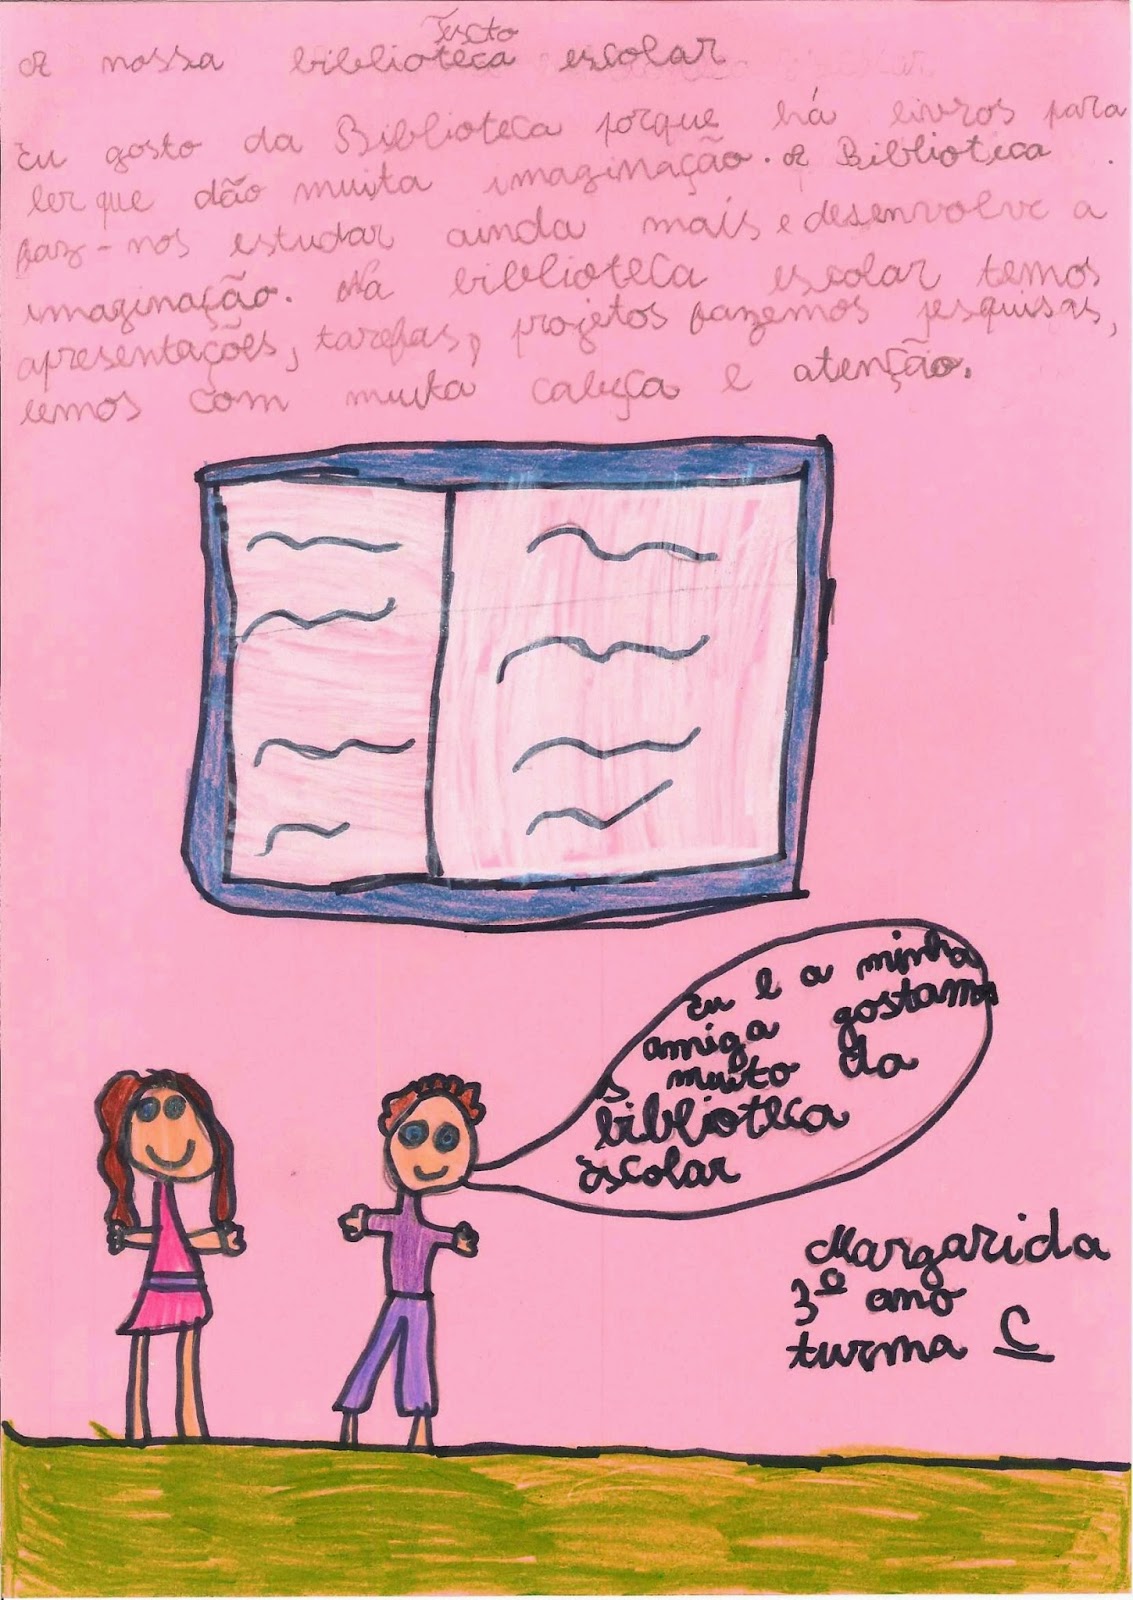 Texto
A nossa biblioteca escolar
Eu gosto da Biblioteca porque há livros para
ler que dão muita imaginação. A Biblioteca
faz-nos estudar ainda mais e desenvolve a
imaginação. Na biblioteca escolar temos
apresentações, tarefas, projetos fazemos pesquisas,
lemos com muita cabeça e atenção.
Eu e a minha
amiga gostamo
s muito da
biblioteca
escolar
Margarida
3º ano
turma C